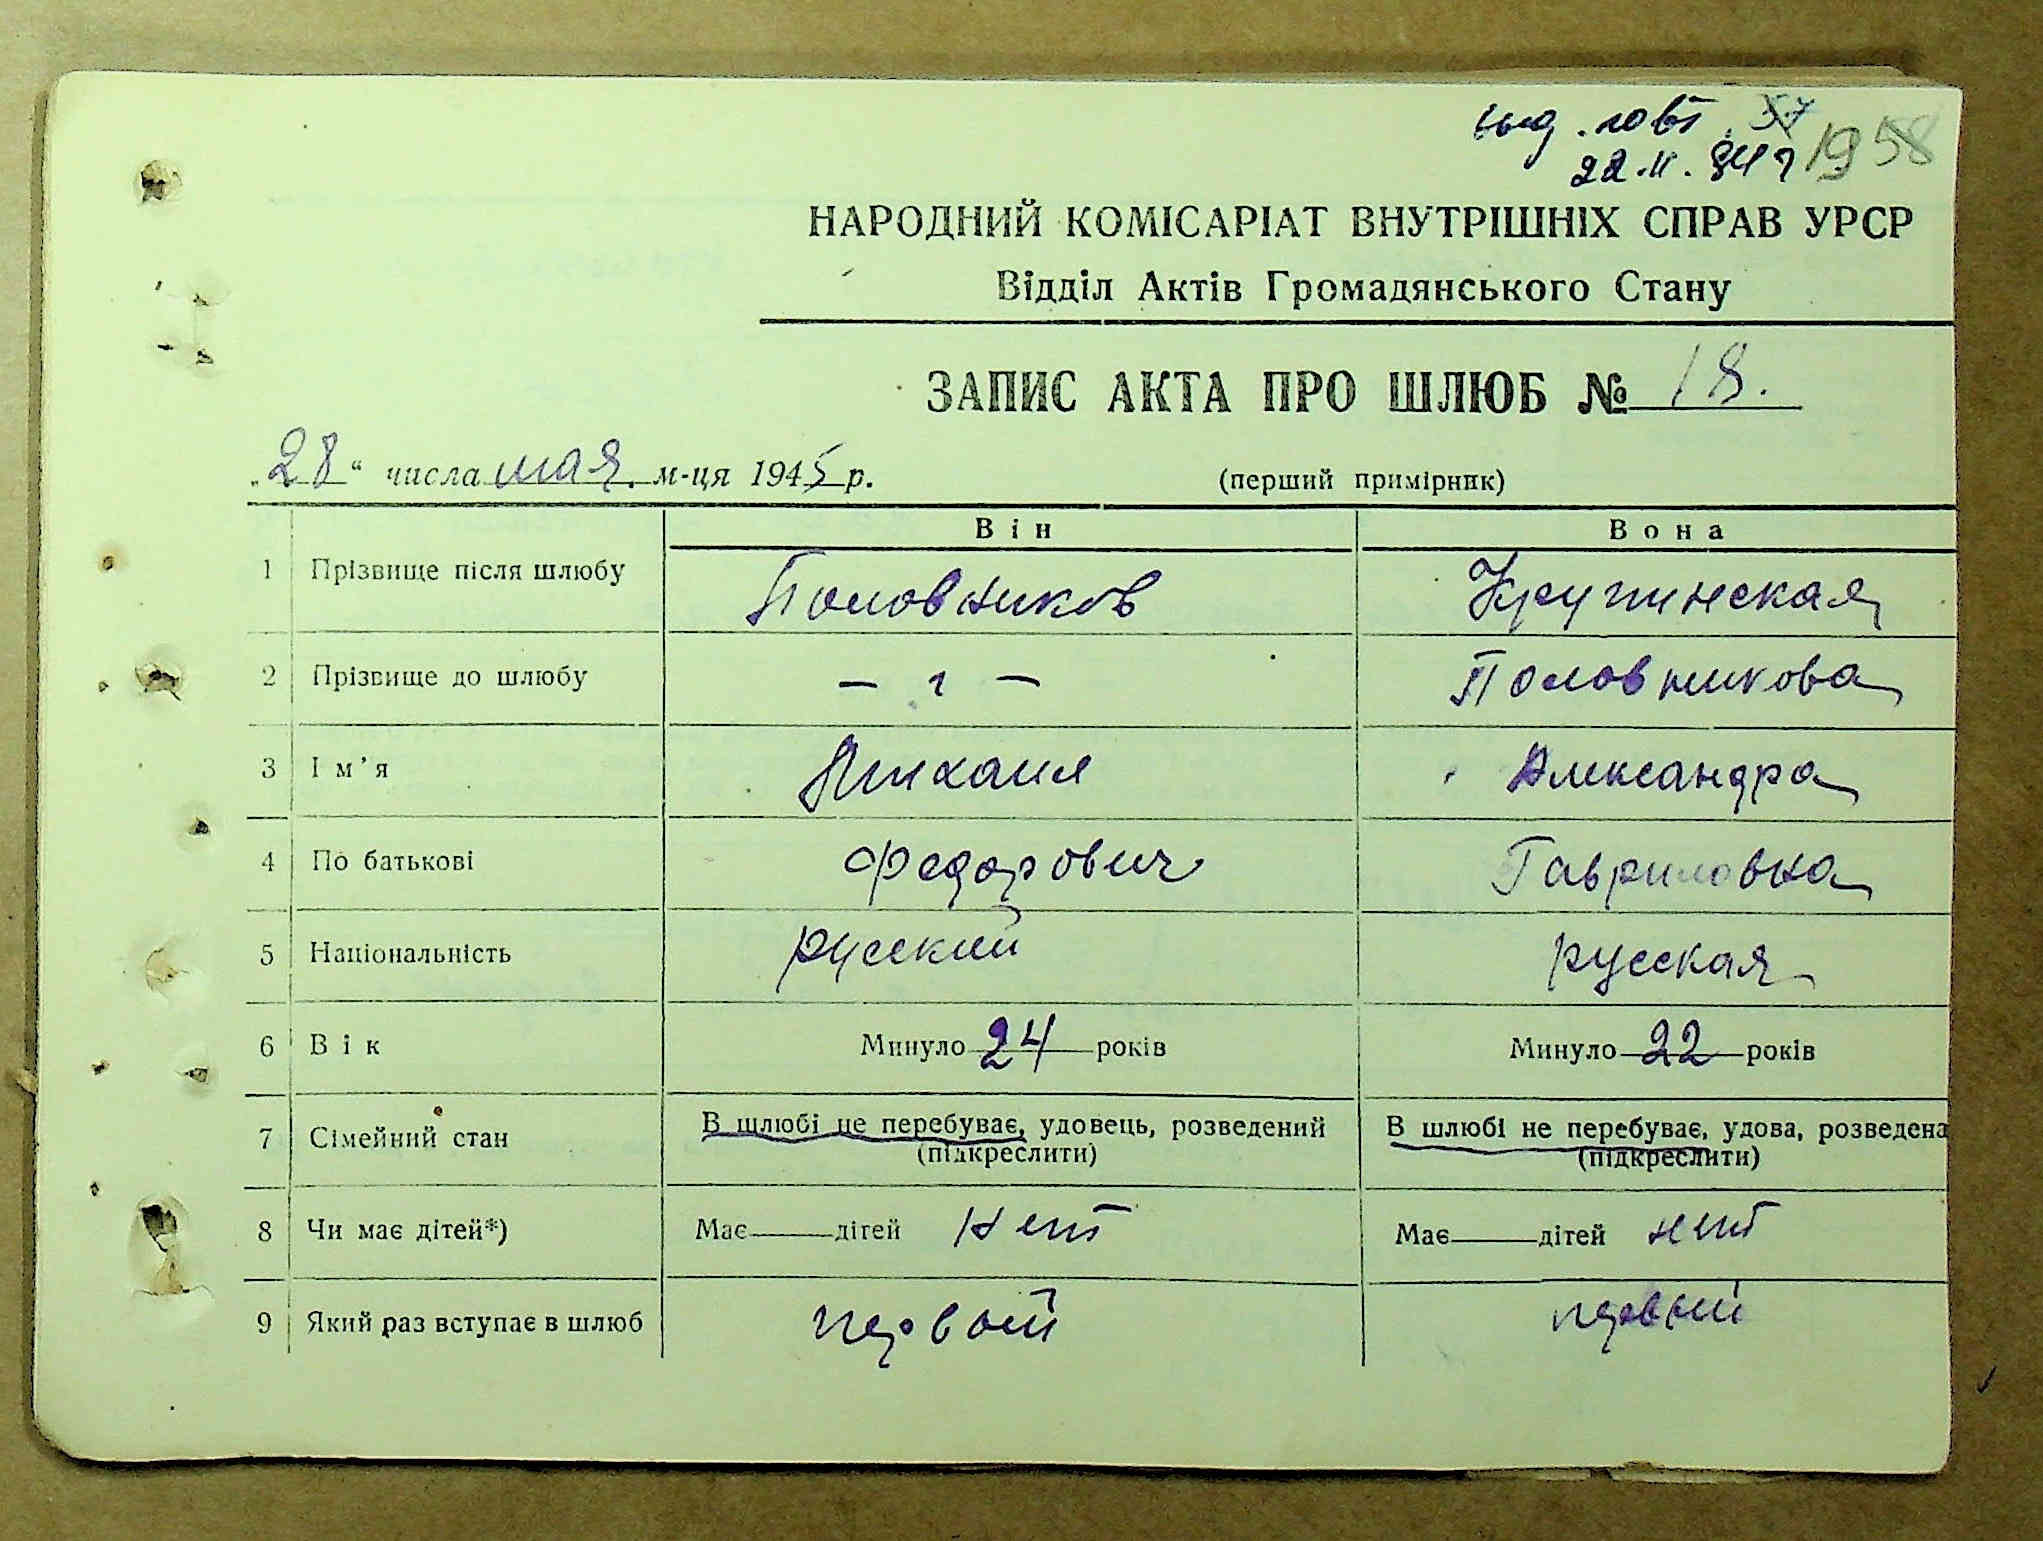 выд. повт. 57
22.II.84г 1958
НАРОДНИЙ КОМІСАРІАТ ВНУТРІШНІХ СПРАВ УРСР
Відділ Актів Громадянського Стану
ЗАПИС АКТА ПРО ШЛЮБ № 18.
„28“ числа мая м-ця 1945 р. (перший примірник)
Він Вона
1 Прізвище після шлюбу Половников Крутинская
2 Прізвище до шлюбу — г — Половникова
3 Ім’я Михаил Александра
4 По батькові Федорович Гавриловна
5 Національність русский русская
6 Вік Минуло 24 років Минуло 22 років
7 Сімейний стан В шлюбі не перебуває, удовець, розведений В шлюбі не перебуває, удова, розведена
(підкреслити) (підкреслити)
8 Чи має дітей*) Має дітей нет Має дітей нет
9 Який раз вступає в шлюб первый первый